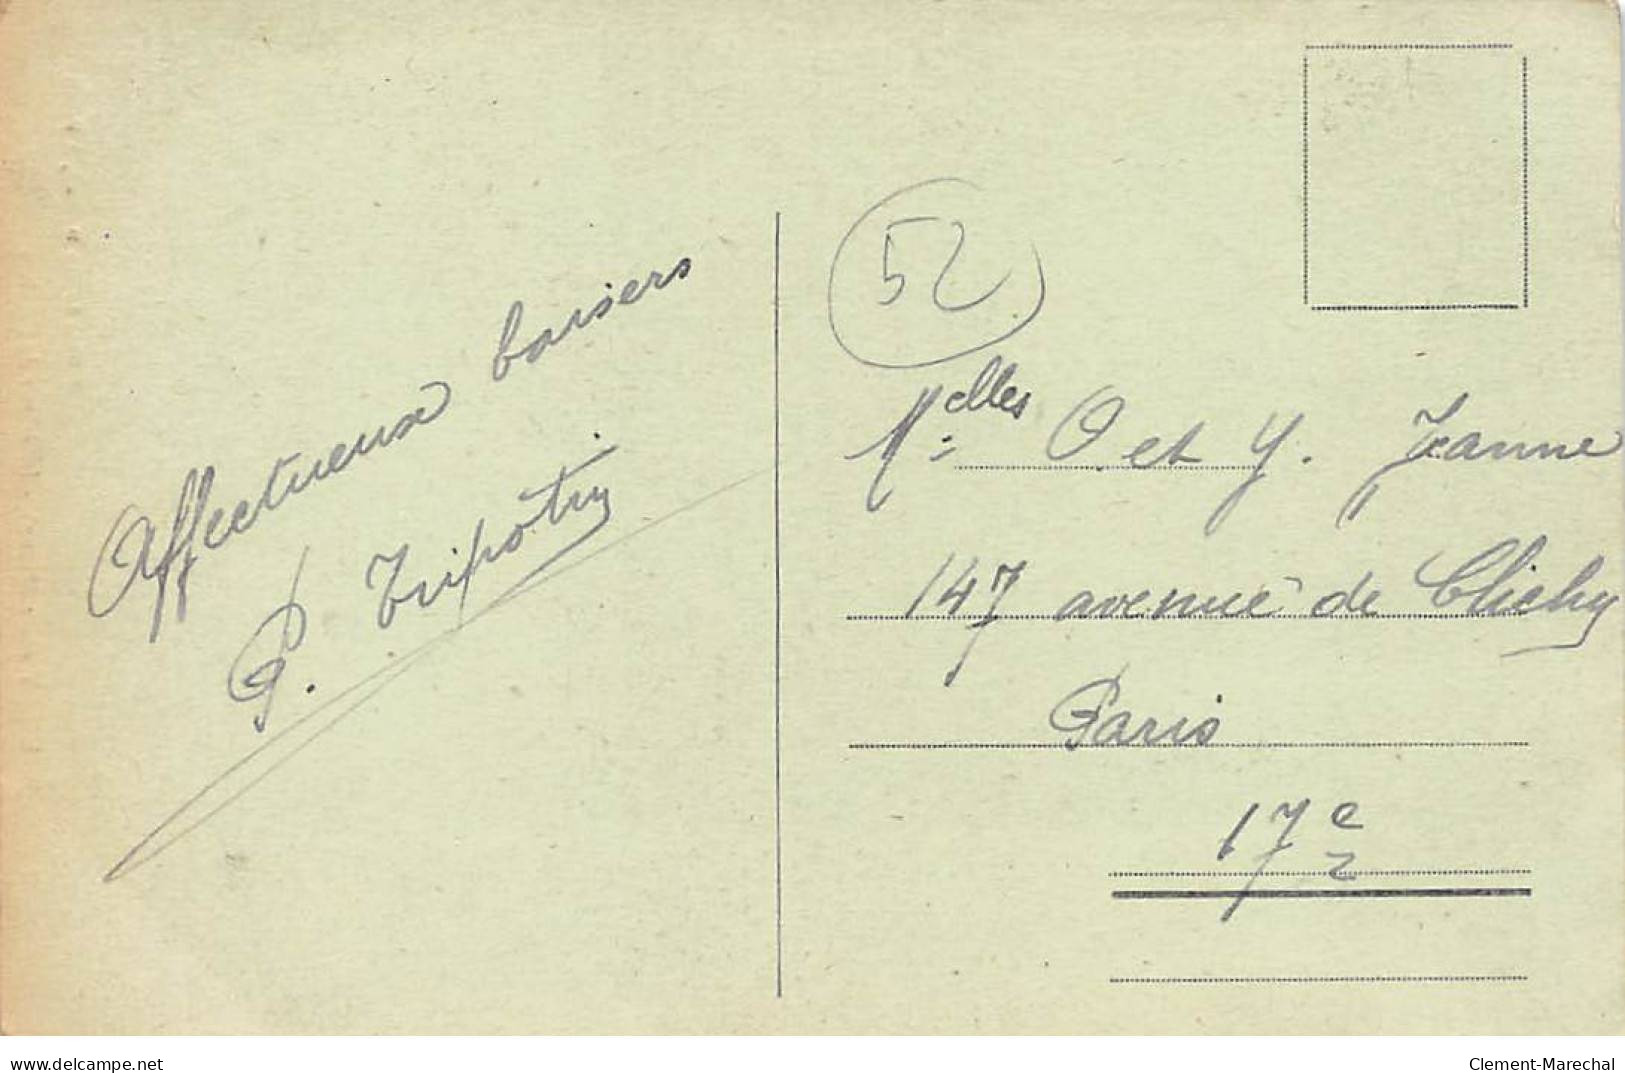 Affectueux baisers
P. Tripotin
52
Melles O et Y. Jeanne
147 avenue de Clichy
Paris
17e
delcampe.net
Clement-Marechal